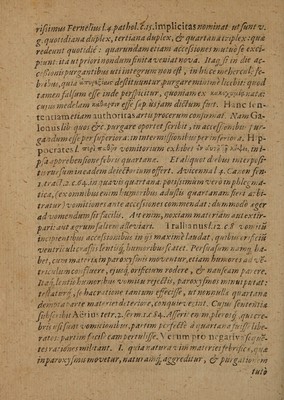 risimus Fernelius l.4. pathol. c.15. Implicitas nominat ut sunt v.
g. quotidiana duplex, tertiana duplex, & quartana triplex: quæ
redeunt quotidie: quarundam etiam accesiones mutuo se excipiunt
ita ut priori nondum finita veniat nova. Itaq; si in die accessionis
purgantibus uti integrum non est, in hisce mehercule febribus,
purgare minime licebit: quod
tamen falsum esse inde perspicitur, quoniam ex
cujus medelam esse sæp iusjam dictum sunt. Hanc sententiam
etiam authoritas artis procerum confirmat. Nam Galenus
sibi quoq; est, purgare oportet scribit, in accesionibus purgandum
esse per superiora: in intermissionibus per inferiora, Hippocrates
vomitorium exhibet in ipsa
operibensione febris quartana. Et aliquot diebus interpositis
rursum in eadem dejectorium offert. Avicenna l.4. Canon fen.
1. tract 2. c. 64. in quavis quartana, potissimum vero in phlegmatica,
(ex omnibus enim humoribus adustis quartanas fieri arbitratur)
vomitionem ante accessiones commendat: dummodo æger
ad vomendum sit facilis. At enim, noxiam materiam aut extirpari:
aut agrum saltem alleviari. Trallianus l.12. c. 8 vomitū
incipientibus accessionibus in ijs maxime laudat, quibus in fissis
ventriculi crassi lentiq; humores sunt. Persuasum namq; habet,
cum materia in paroxysmis moveatur, etiam humores ad ventriculum
confluere, ejusq; orificium rodere, & nauseam parere.
Itaq; lentis humoribus vomitu rejectis, paroxysmos minui putat:
testatur, se hac ratione tantum effecisse, ut nonnullis quartana
demta parte materiei deteriore, conquieverint. Cujus sententiæ
subscribit Aëtius tetr. 2. serm. 1. c. 84. Asserit enim plerosq; quartebris
ejusmodi vomitionibus, partim perfectè à quartana fuisse liberatos:
partim facile eam pertulisse. Verum pro negativa sequentes
rationes militant. I. quia natura vim materiei febrificæ, quæ
in paroxysmis movetur, naturamq; aggreditur, & purgationis
tuto